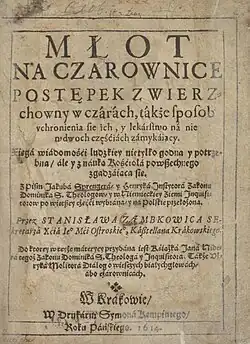 MŁOT
NA CZAROWNICE
POSTĘPEK ZWIERZ-
chowny w czárách, tákże sposob
vchronienia sie ich, y lekárstwo ná nie
w dwoch częśćiách zámykáiący.
Księgá wiádomośći ludzkiey nietylko godna y potrze-
bna / ále y z náuką Kośćiołá powszechnego
zgadzáiąca sie.
Z Pism Jakubá Sprengerá y Henryká Instytorá Zakonu
Dominiká S. Theologow y w Niemieckiey Ziemi Inquizi-
torow po więtszey częśći wybrána / y ná Polskie przełożona.
Przez STANISŁAWA ZĄMBKOWICA SE-
kretarzá Xćiá Je° Mći Ostroskie°, Kásztellaná Krákowskiego.
Do ktorey
przydána iest Kśiąszká Janá
tegoż Zakonu Dominiká S. Theologá y Inquisitorá. Tákże
Molitorá Dialog o wieszczych białychgłowách /
ábo czárownicách.
W Krákowie /
W Drukárni Szymoná Kempiniego /
Roku Páńskiego. 1614.